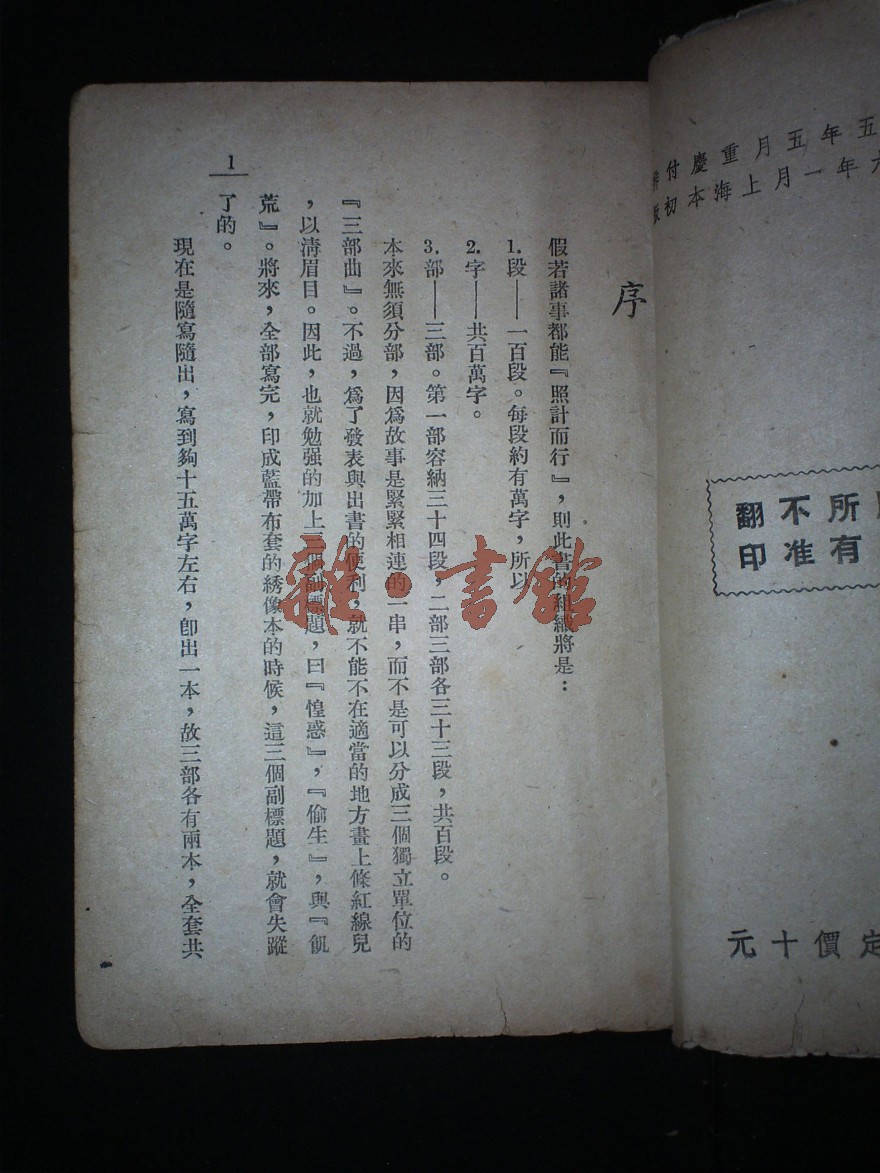 五年五月重慶付
年一月上海本初
所
不
翻
有准印
定價十元
序
假若諸事都能『照計而行』，則此書的組織將是：
1. 段——一百段。每段約有萬字，所以
2. 字——共百萬字。
3. 部——三部。第一部容納三十四段，二部三部各三十三段，共百段。
本來無須分部，因爲故事是緊緊相連的一串，而不是可以分成三個獨立單位的
『三部曲』。不過，爲了發表與出書的便利，就不能不在適當的地方畫上條紅線兒
，以淸眉目。因此，也就勉强的加上三個副標題，曰『惶惑』，『偷生』，與『飢
荒』。將來，全部寫完，印成藍帶布套的綉像本的時候，這三個副標題，就會失蹤
了的。
現在是隨寫隨出，寫到夠十五萬字左右，卽出一本，故三部各有兩本，全套共
1
雜·書館